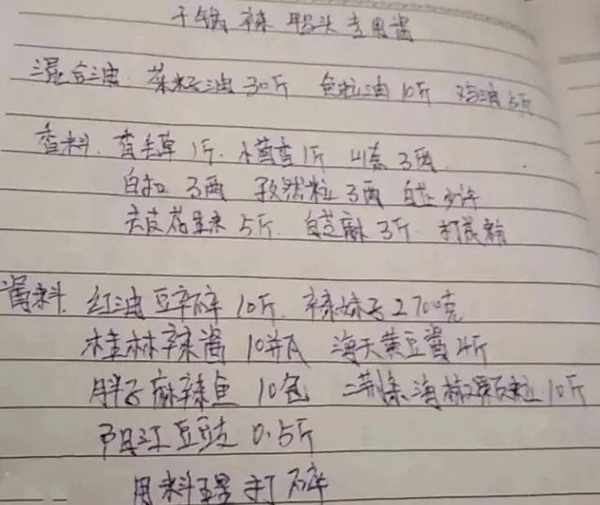 干锅辣鸭头专用酱
混合油 菜籽油30斤 色拉油10斤 鸡油5斤
香料. 香毛草1斤. 小茴香1斤 山奈3两
白扣3两 孜然粒3两 白芷少许
去皮花生米5斤 白芝麻3斤 打成粉
酱料 红油豆辛碎10斤. 辣妹子2700克
桂林辣酱10并瓦 海天黄豆酱4斤
胖子麻辣鱼10包 二荆条海椒颗粒10斤
阳江豆豉0.5斤
用料理打碎